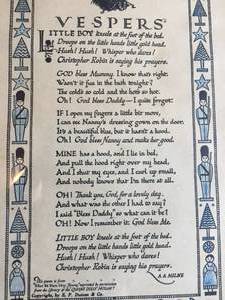 VESPERS
LITTLE BOY kneels at the foot of the bed.
Droops on the little hands little gold head.
Hush! Hush! Whisper who dares!
Christopher Robin is saying his prayers.
GOD bless Mummy. I know that's right.
Wasn't it fun in the bath tonight?
The cold's so cold and the hot's so hot.
Oh! God bless Daddy—I quite forgot.
IF I open my fingers a little bit more,
I can see Nanny's dressing gown on the door.
It's a beautiful blue, but it hasn't a hood.
Oh! God bless Nanny and make her good.
MINE has a hood, and I lie in bed,
And pull the hood right over my head,
And I shut my eyes, and I curl up small,
And nobody knows that I'm there at all.
OH! Thank you, God, for a lovely day.
And what was the other I had to say?
I said "Bless Daddy" so what can it be?
OH! Now I remember it: God bless Me.
LITTLE BOY kneels at the foot of the bed.
Droops on the little hands little gold head.
Hush! Hush! Whisper who dares!
Christopher Robin is saying his prayers.
A.A. MILNE
This poem is from
"When We Were Very Young," by permission
Copyright, by E. P. Dutton & Co.